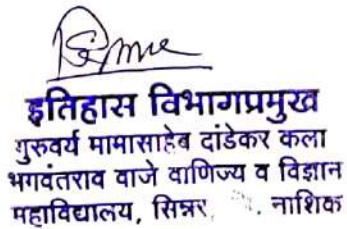 इतिहास विभागप्रमुख
गुरुवर्य मामासाहेब दांडेकर कला
भगवंतराव वाजे वाणिज्य व विज्ञान
महाविद्यालय, सिन्नर, . नाशिक